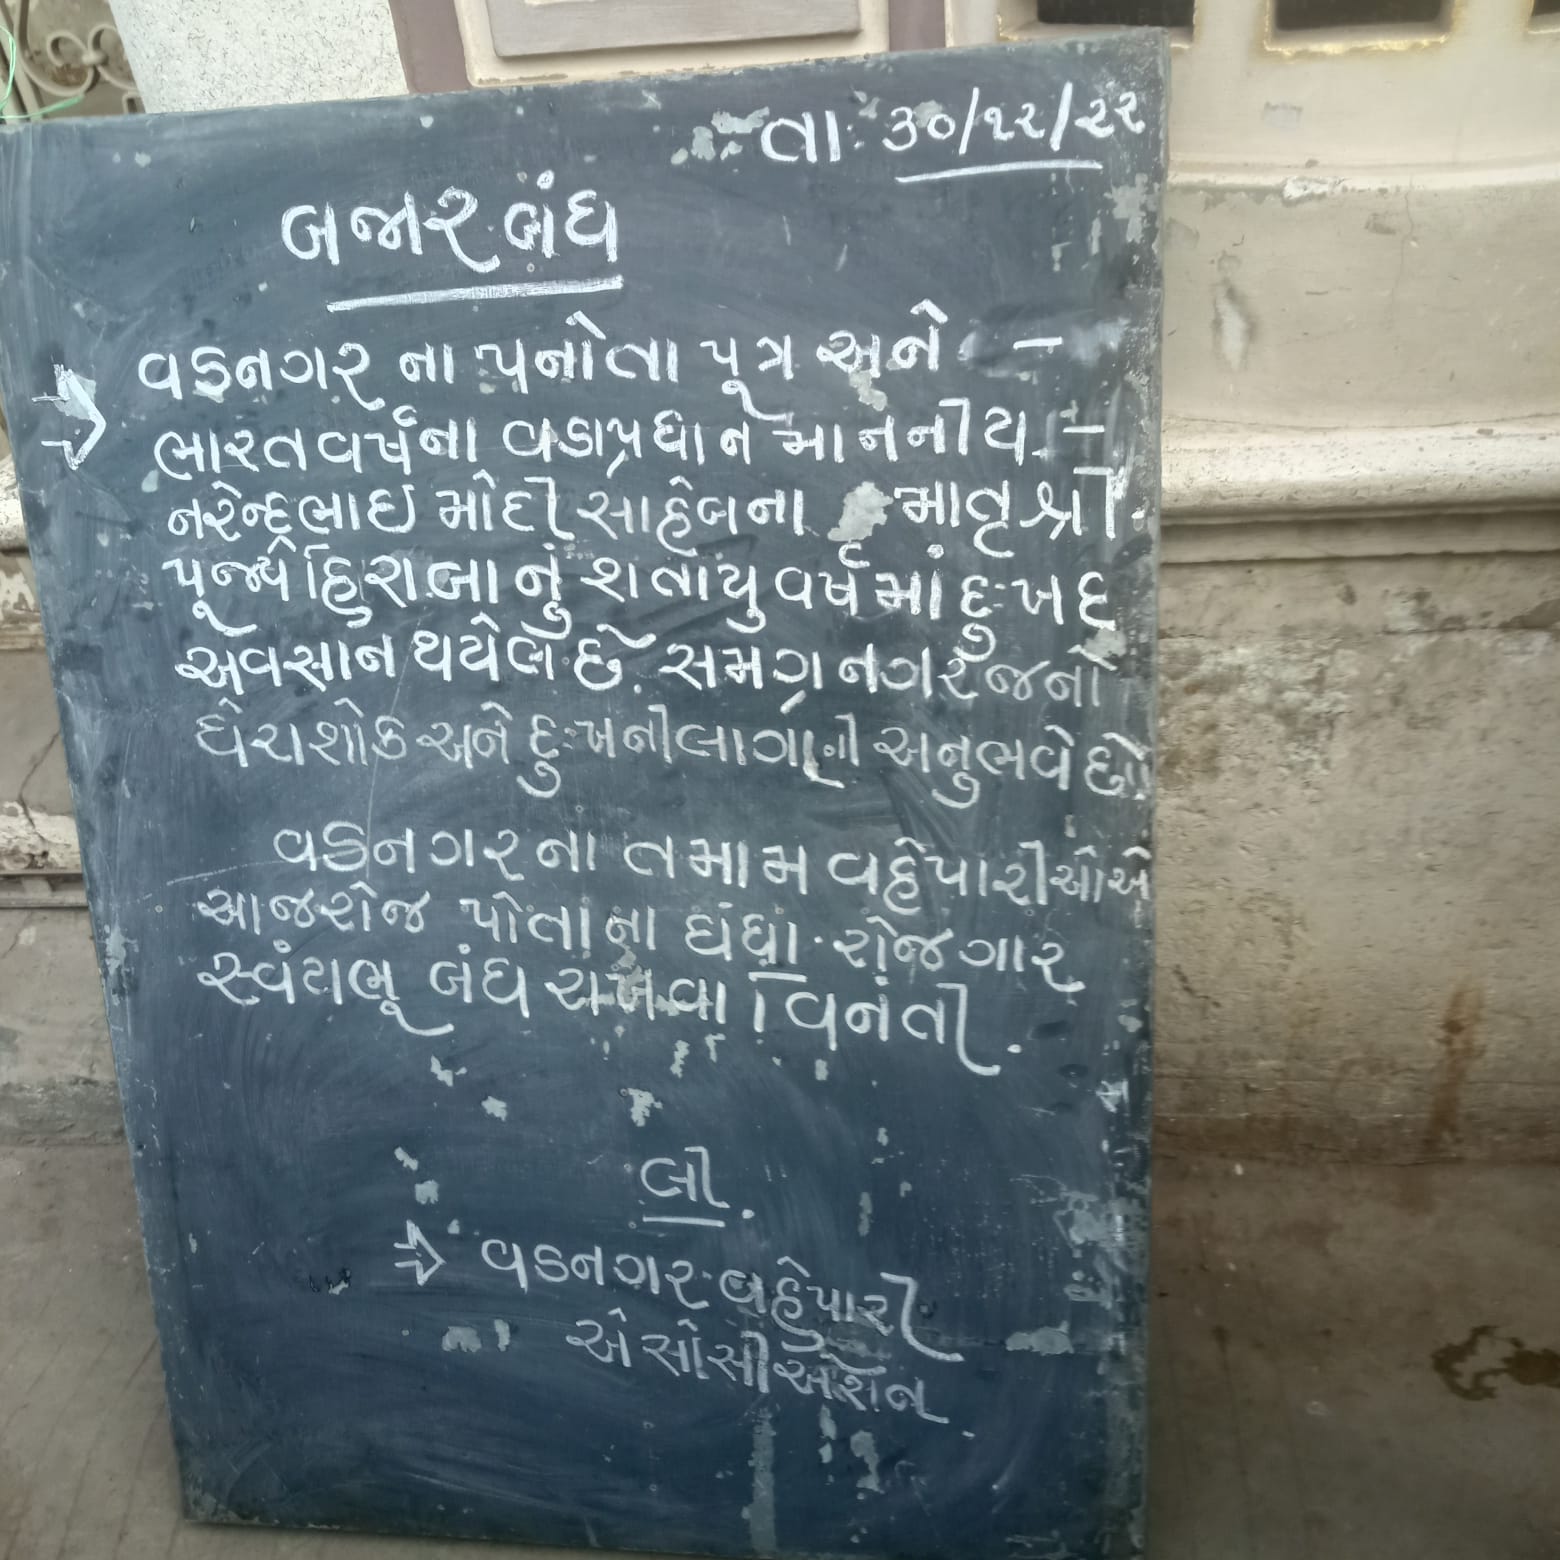 તા: ૩૦/૧૨/૨૨
બજાર બંધ
વડનગર ના પનોતા પૂત્ર અને -
ભારતવર્ષના વડાપ્રધાન માનનીય -
નરેન્દ્રભાઇ મોદી સાહેબના માતૃશ્રી
પૂજ્ય હિરાબા નું શતાયુ વર્ષમાં દુઃખદ
અવસાન થયેલ છે. સમગ્ર નગરજનો
ઘેરાશોક અને દુઃખની લાગણી અનુભવે છે
વડનગર ના તમામ વહેપારીઓએ
આજરોજ પોતાના ધંધા રોજગાર
સ્વંયભૂ બંધ રાખવા વિનંતી.
લી.
વડનગર વહેપારી
એસોસીએશન